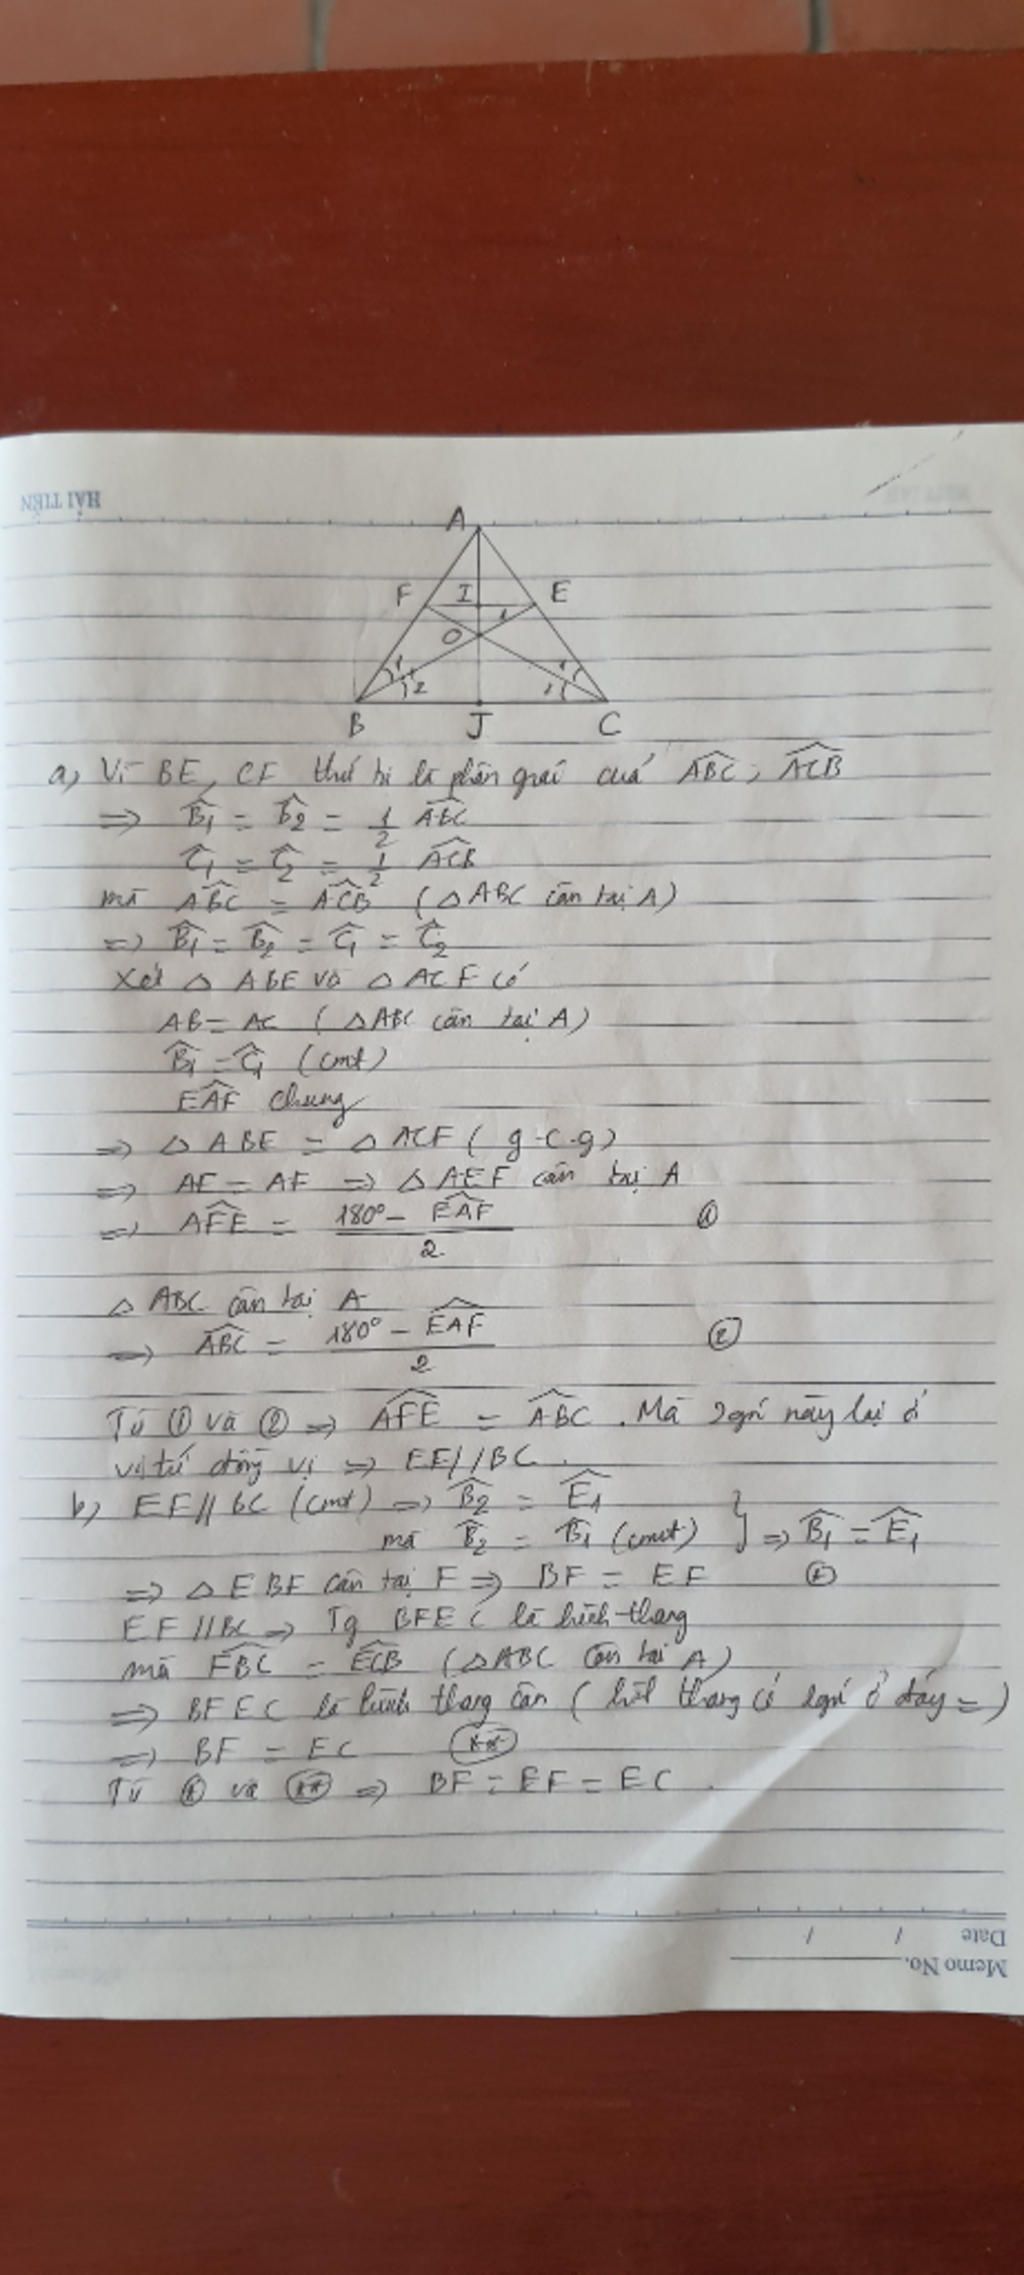 HẢI TIẾN
A
F I E
O 1
1 2 1 2
B J C
a) Vì BE, CF thứ tự là phân giác của ABC, ACB
=> B1 = B2 = 1/2 ABC
C1 = C2 = 1/2 ACB
mà ABC = ACB (△ABC cân tại A)
=> B1 = B2 = C1 = C2
Xét △ ABE và △ ACF có
AB = AC (△ABC cân tại A)
B1 = C1 (cmt)
EAF chung
=> △ ABE = △ ACF (g-c-g)
=> AE = AF => △ AEF cân tại A
=> AFE = (180° - EAF)/2 ①
△ ABC cân tại A
=> ABC = (180° - EAF)/2 ②
Từ ① và ② => AFE = ABC. Mà 2 góc này lại ở
vị trí đồng vị => EF // BC.
b) EF // BC (cmt) => B2 = E1
mà B2 = B1 (cmt) } => B1 = E1
=> △ EBF cân tại F => BF = EF (*)
EF // BC => Tg BFEC là hình thang
mà FBC = ECB (△ABC cân tại A)
=> BFEC là hình thang cân (hình thang có 2 góc ở đáy =)
=> BF = EC (**)
Từ (*) và (**) => BF = EF = EC.
Date / /
Memo No.